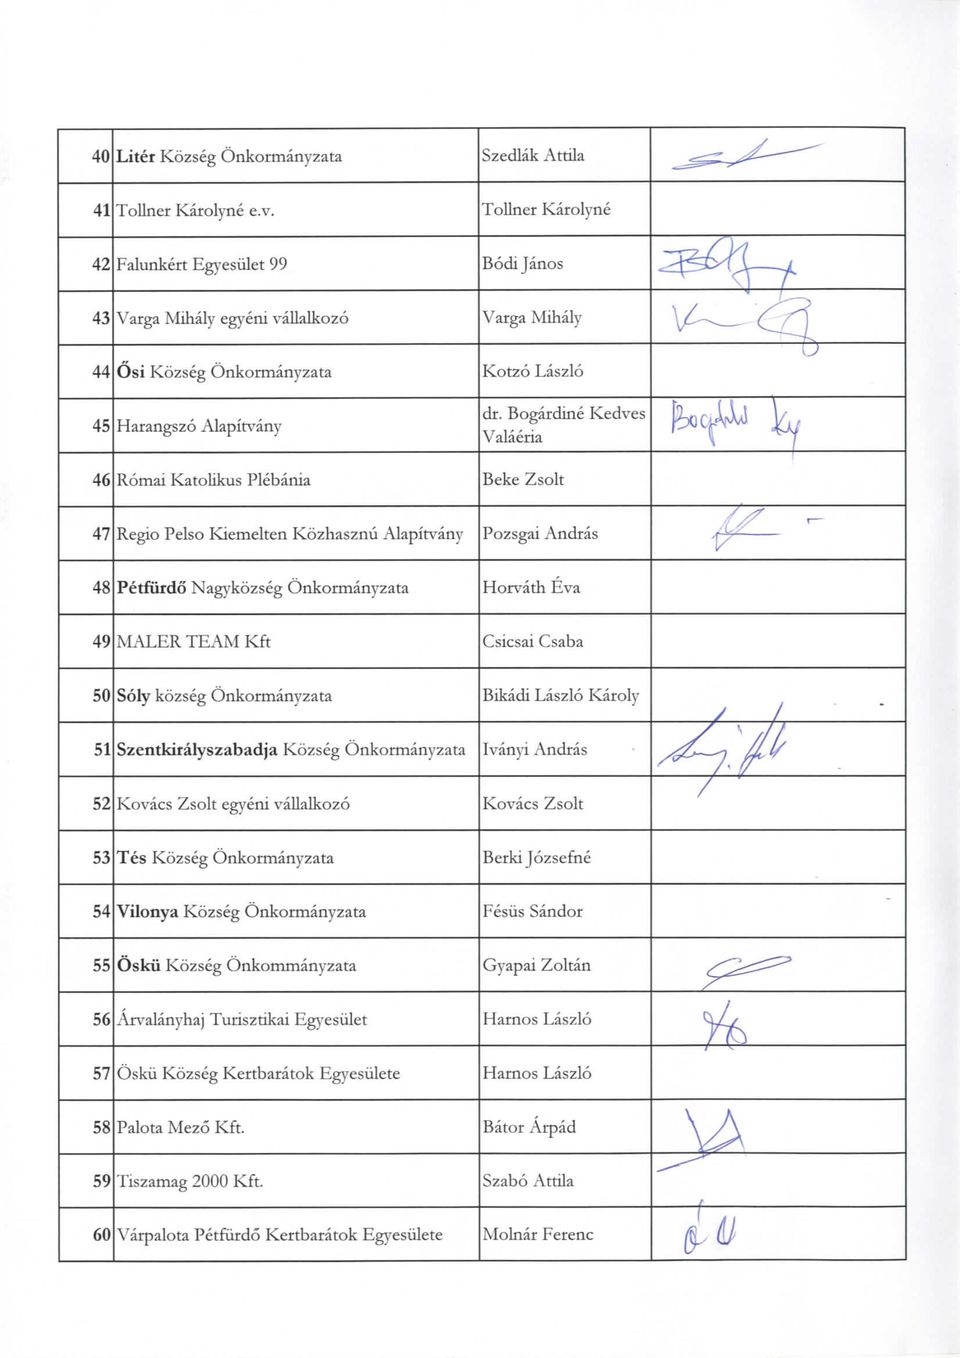 40 Litér Község Önkormányzata Szedlák Attila
41 Tollner Károlyné e.v. Tollner Károlyné
42 Falunkért Egyesület 99 Bódi János
43 Varga Mihály egyéni vállalkozó Varga Mihály
44 Ősi Község Önkormányzata Kotzó László
45 Harangszó Alapítvány dr. Bogárdiné Kedves
Valáéria
46 Római Katolikus Plébánia Beke Zsolt
47 Regio Pelso Kiemelten Közhasznú Alapítvány Pozsgai András
48 Pétfürdő Nagyközség Önkormányzata Horváth Éva
49 MALER TEAM Kft Csicsai Csaba
50 Sóly község Önkormányzata Bikádi László Károly
51 Szentkirályszabadja Község Önkormányzata Iványi András
52 Kovács Zsolt egyéni vállalkozó Kovács Zsolt
53 Tés Község Önkormányzata Berki Józsefné
54 Vilonya Község Önkormányzata Fésüs Sándor
55 Öskü Község Önkommányzata Gyapai Zoltán
56 Árvalányhaj Turisztikai Egyesület Harnos László
57 Öskü Község Kertbarátok Egyesülete Harnos László
58 Palota Mező Kft. Bátor Árpád
59 Tiszamag 2000 Kft. Szabó Attila
60 Várpalota Pétfürdő Kertbarátok Egyesülete Molnár Ferenc